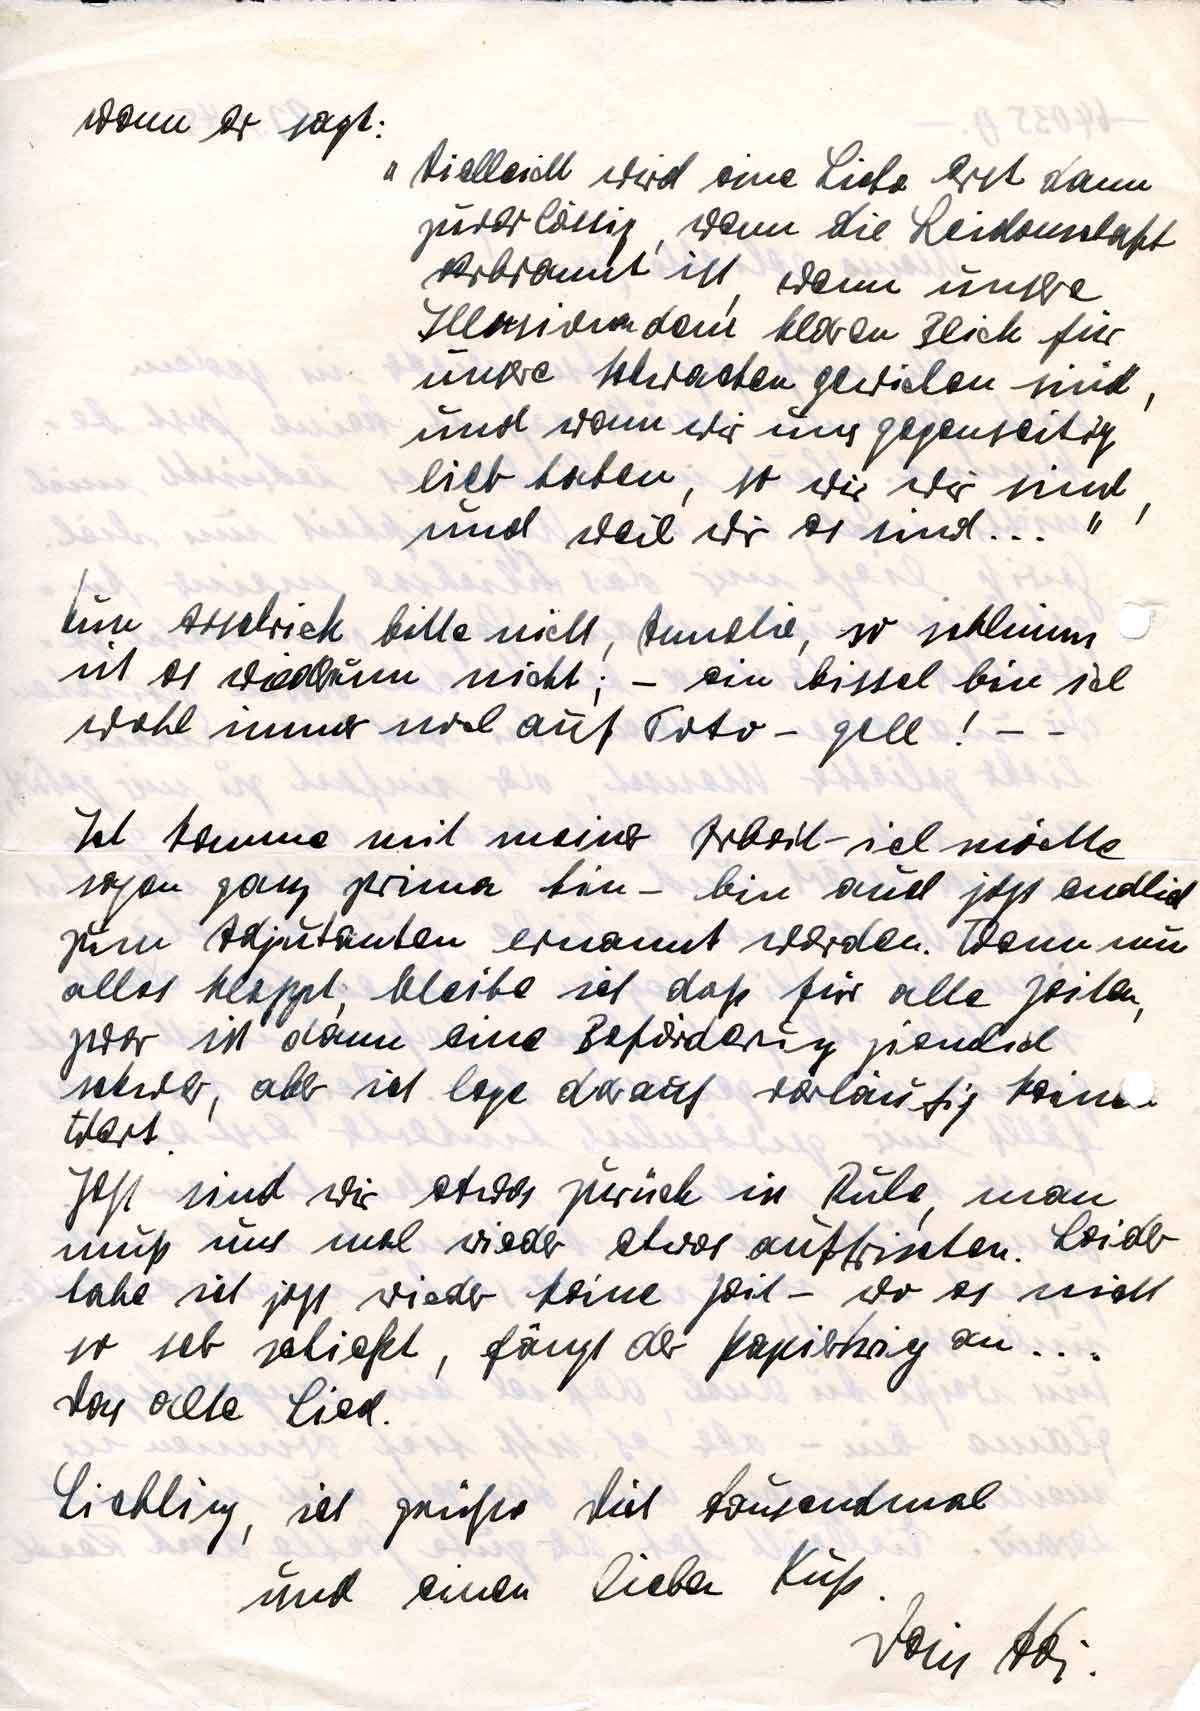 wenn er sagt:
„Vielleicht wird eine Liebe erst dann
zuverlässig, wenn die Leidenschaft
verbrannt ist, wenn unsere
Illusionen dem klaren Blick für
unsre Schwächen gewichen sind,
und wenn wir uns gegenseitig
lieb haben, so wie wir sind,
und weil wir es sind... "
Nun erschrick bitte nicht, Annelie, so schlimm
ist es wiederum nicht; – ein bissel bin ich
wohl immer noch auf Toto – gell! – –
Ich komme mit meiner Arbeit – ich möchte
sagen ganz prima hin – bin auch jetzt endlich
zum Adjutanten ernannt worden. Wenn nun
alles klappt, bleibe ich daß für alle Zeiten,
zwar ist dann eine Beförderung ziemlich
schwer, aber ich lege darauf vorläufig keinen
Wert.
Jetzt sind wir etwas zurück in Ruhe, man
muß uns mal wieder etwas auffrischen. Leider
habe ich jetzt wieder keine Zeit – wo es nicht
so seh schießt, fängt der Papierkrieg an....
Das alte Lied.
Liebling, ich grüße Dich tausendmal
und einen lieben Kuß.
Dein Adi.